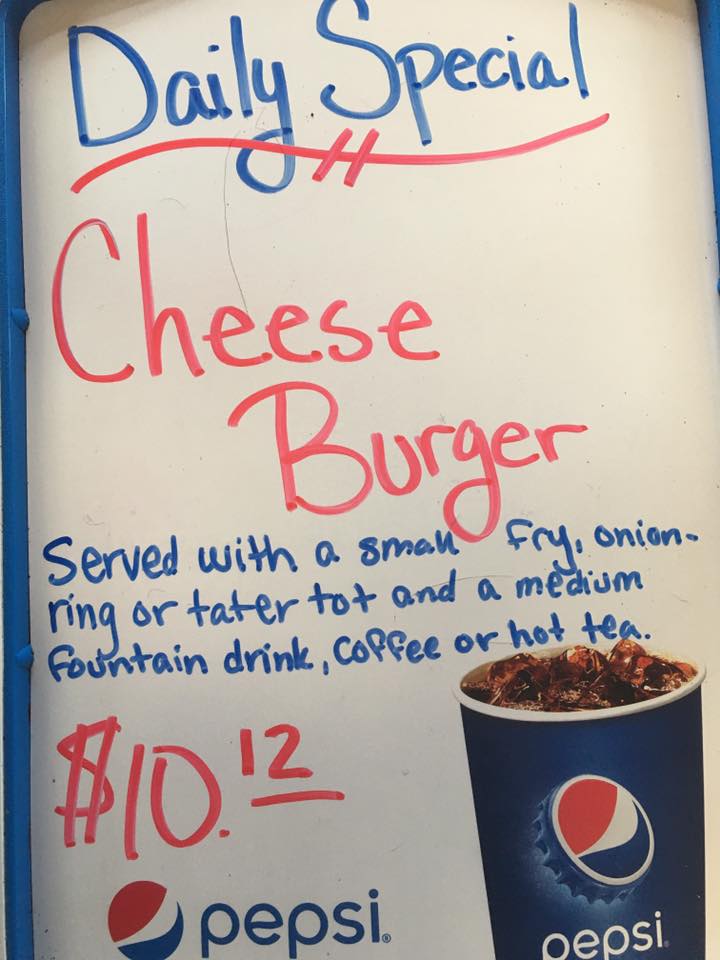 Daily Special
Cheese
Burger
Served with a small fry, onion-
ring or tater tot and a medium
fountain drink, coffee or hot tea.
$10.12
pepsi®
pepsi